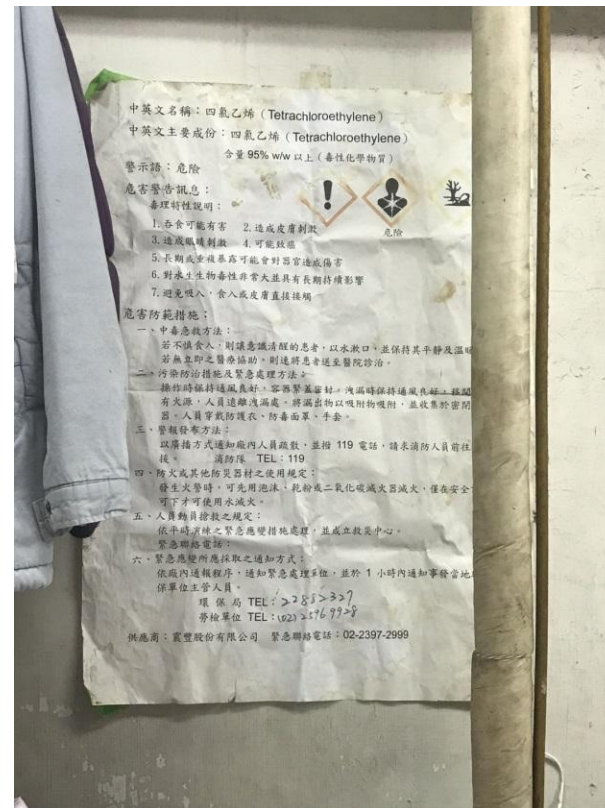 中英文名稱：四氯乙烯（Tetrachloroethylene）
中英文主要成份：四氯乙烯（Tetrachloroethylene）
含量 95% w/w 以上（毒性化學物質）
警示語：危險
危害警告訊息：
毒理特性說明：
危險
1.吞食可能有害 2.造成皮膚刺激
3.造成眼睛刺激 4.可能致癌
5.長期或重複暴露可能會對器官造成傷害
6.對水生生物毒性非常大並具有長期持續影響
7.避免吸入，食入或皮膚直接接觸
危害防範措施：
一、中毒急救方法：
若不慎食入，則讓意識清醒的患者，以水漱口，並保持其平靜及溫暖
若無立即之醫療協助，則速將患者送至醫院診治。
二、污染防治措施及緊急處理方法：
操作時保持通風良好，容器緊蓋密封。洩漏時保持通風良好，移開
有火源，人員遠離洩漏處。將漏出物以吸附物吸附，並收集於密閉
器。人員穿戴防護衣、防毒面罩、手套。
三、警報發布方法：
以廣播方式通知廠內人員疏散，並撥 119 電話，請求消防人員前往
接。 消防隊 TEL：119
四、防火或其他防災器材之使用規定：
發生火警時，可先用泡沫、乾粉或二氧化碳滅火器滅火，僅在安全
可下才可使用水滅火。
五、人員動員搶救之規定：
依平時演練之緊急應變措施處理，並成立救災中心。
緊急聯絡電話：
六、緊急應變所應採取之通知方式：
依廠內通報程序，通知緊急處理單位，並於 1 小時內通知事發當地
保單位主管人員。
環 保 局 TEL：22882327
勞檢單位 TEL：(02) 2596 9928
供應商：寰豐股份有限公司 緊急聯絡電話：02-2397-2999